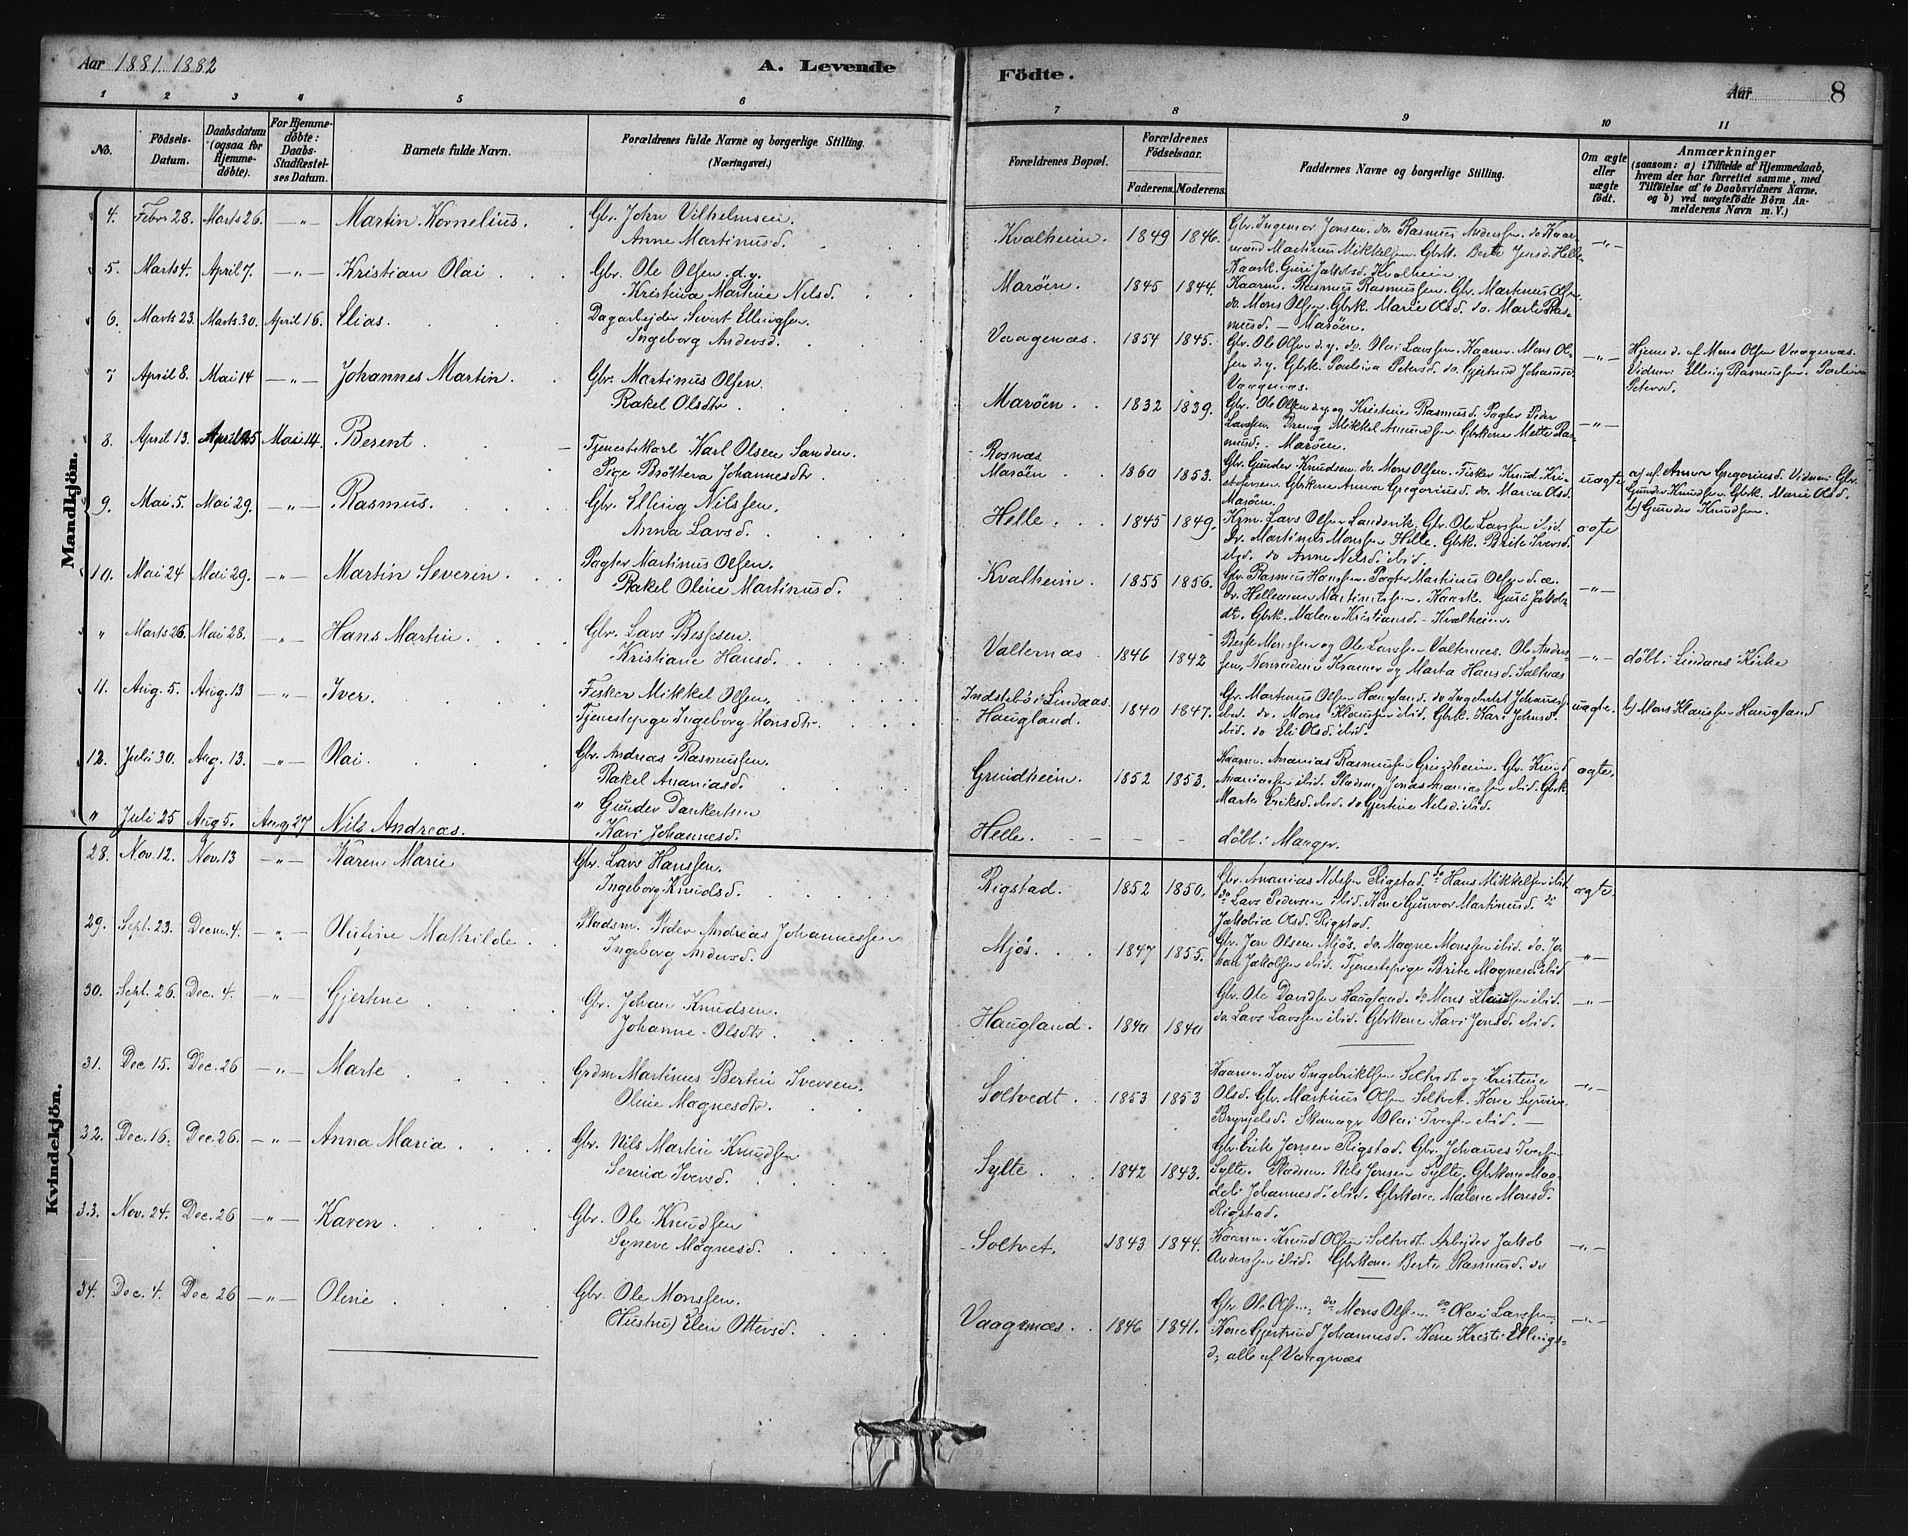 Aar 1881. 1882
A. Levende
Födte.
Aar
8
1 2 3 4 5 6
7 8 9 10 11
No.
Födsels-
Datum.
Daabsdatum
(ogsaa for
Hjemme-
döbte).
For Hjemme-
döbte:
Daabs-
Stadfæstel-
ses Datum.
Barnets fulde Navn.
Forældrenes fulde Navne og borgerlige Stilling.
(Næringsvei.)
Forældrenes Bopæl.
Forældrenes
Födselsaar.
Faderens. Moderens.
Faddernes Navne og borgerlige Stilling.
Om ægte
eller
uægte
født.
Anmærkninger
(saasom: a) i Tilfælde af Hjemmedaab,
hvem der har forrettet samme, med
Tilföielse af to Daabsvidners Navne.
og b) ved uægtefödte Börn An-
melderens Navn m. V.)
Mandkjön.
4. Febr 28. Marts 26. —"— Martin Kornelius. Gbr. John Vilhelmsen.
Anne Martinusd.
Kvalheim. 1849 1846. Gbr. Ingemor Jonsen. do. Rasmus Andersen. do Kaar-
mand Martinus Mikkelsen. Gbrk. Berte Jensd. Helle.
Kaark. Guri Jakobsd. Kvalheim —"—
5. Marts 4. April 7. —"— Kristian Olai Gbr. Ole Olsen. d.y.
Kristina Martine Nilsd.
Marøen. 1845 1844. Kaarm. Rasmus Rasmussen. Gbr. Martinus Olsen.
do. Mons Olsen. Gbrk. Marie Olsd. do. Marte Ras-
musd. — Marøen.
6. Marts 23. Marts 30. April 16. Elias. Dagarbejder Sivert Ellingsen.
Ingeborg Andersd.
Vaagenæs. 1854 1845. Gbr. Ole Olsen d.y. do. Olai Larssen. Kaarm. Mons Ol-
sen d.y. Gbrk. Paulina Petersd. do. Gjertrud Johannesd.
Vaagenæs. —"— Hjemd. af Mons Olsen Vaagenæs.
Vidner: Elling Rasmussen. Paulina
Petersd.
7 April 8. Mai 14 —"— Johannes Martin. Gbr. Martinus Olsen.
Rakel Olsdtr.
Marøen. 1832 1839. Gbr. Ole Olsen d.y. og Kristine Rasmusd. Pagter Peder
Larssen. Dreng Mikkel Amundsen. Gbrkone Mette Ras-
musd. Marøen. —"—
8. April 13. April 25 Mai 14. Berent. Tjenestekarl Karl Olsen Sanden.
Pige Brøttera Johannesdtr.
Rosnæs
Marøen 1860 1853. Gbr. Gunder Knudsen. do Mons Olsen. Fisker Knud Kri-
stofersen. Gbrkone Anna Gregoriusd. do. Maria Olsd.
Marøen uægte a) af Anna Gregoriusd. Vidner: Gbr.
Gunder Knudsen. Gbrk. Marie Olsd.
b) Gunder Knudsen.
9. Mai. 5. Mai 29. —"— Rasmus. Gbr. Elling Nilssen.
Anna Larsd.
Helle. 1845 1849. Krm. Lars Olsen Landsvik. Gbr. Ole Larssen ibid.
Gr. Martinus Monssen Helle. Gbrk. Brite Iversd.
ibid. do Anne Nilsd. ibid. ægte
10. Mai 24 Mai 29. —"— Martin Severin. Pagter Martinus Olsen.
Rakel Oline Martinusd.
Kvalheim. 1855 1856. Gbr. Rasmus Hanssen. Pagter Martinus Olsen d. æ.
Kaark. Guri Jakobs-
dt. Gbrk. Malene Kristiansd. — Kvalheim. —"—
" Marts 26. Mai 28. —"— Hans Martin. Gbr. Lars Bessesen.
Kristiane Hansd.
Valternæs 1846 1842 Monssen og Ole Larssen Valternæs. Ole Anders-
sen, og Marta Hansd. Saltnæs —"— døbt i Lindaas Kirke
11. Aug. 5. Aug. 13 —"— Iver. Fisker Mikkel Olsen.
Tjenestepige Ingeborg Monsdtr.
Indstebø i Lindaas.
Haugland. 1840 1847. Gbr. Martinus Olsen Haugland. do Ingebrigt Johannessen
ibid. do. Mons Klaussen ibid. Gbrk. Kari Johnsd.
ibid. do Eli Olsd. ibid. uægte. b) Mons Klaussen Haugland
12. Juli 30. Aug. 13. —"— Olai. Gbr. Andreas Rasmussen.
Rakel Ananiasd.
Grindheim. 1852 1853. Kaarm. Ananias Rasmussen Grindheim. Gbr. Knud
Ananiassen ibid. Pladsm. Jonas Ananiassen ibid. Gbrk
Marte Eriksd. ibid. do Gjertine Nilsd. ibid. ægte.
" Juli 25 Aug 5. Aug. 27 Nils Andreas. " Gunder Dankertsen
Kari Johannesd.
Helle. — — — døbt i Manger.
Kvindekjön.
28. Nov. 12. Nov. 13 —"— Karen Marie Gbr. Lars Hanssen.
Ingeborg Knudsd.
Rigstad. 1852 1850. Gbr. Ananias Nilssen Rigstad. do Hans Mikkelsen ibid
do Lars Pedersen ibid. Kone Gunvor Martinusd. do
Jakobia Olsd. Rigstad. ægte.
29. Sept. 23. Decem. 4. —"— Olufine Mathilde. Pladsm. Peder Andreas Johannessen
Ingeborg Andersd.
Mjøs. 1847 1855. Gbr. Jon Olsen Mjøs. do. Magne Monssen ibid. do. Jo-
han Jakobsen ibid. Tjenestepige Brite Magnesd. ibid —"—
30. Sept. 26. Dec. 4. —"— Gjertine Gbr. Johan Knudsen.
Johanne Olsdtr.
Haugland. 1840 1840 Gbr. Ole Davidsen Haugland. do Mons Klaussen ibid.
do. Lars Larssen ibid. Gbrkone Kari Jonsd. ibid. —"—
31. Dec. 15. Dec. 26 —"— Marte Grdm. Martinus Bertin Iversen.
Oline Magnesdtr.
Soltvedt. 1853 1853 Kaarm. Iver Ingebriktsen Soltvedt og Kristine
Olsd. Gbr. Martinus Olsen Soltvet. Kone Synneve
Brynjelsd. Skomager Olai Iversen ibid. — —"—
32. Dec. 16. Dec. 26. —"— Anna Maria Gbr. Nils Martin Knudsen
Serina Iversd.
Sylte. 1842 1843. Gbr. Erik Jonsen Rigstad. Gbr. Johannes Iversen
Sylte. Pladsm. Nils Jonsen Sylte, Gbrkone Mag-
deli Johannesd. ibid. Gbrkone Malene Monsd.
Rigstad.
33. Nov. 24. Dec. 26 —"— Karen Gbr. Ole Knudsen
Synneve Magnesd.
Soltvet. 1843 1844. Kaarm. Knud Olsen Soltvedt. Arbejder Jakob
Anderssen ibid. Gbrkone Berte Rasmusd. do —"—
34. Dec. 4. Dec 26 —"— Oline Gbr. Ole Monssen.
(Hustru) Elen Ottersd.
Vaagenæs. 1846 1841. Gbr. Ole Olsen, do Mons Olsen, do Olai Larssen,
Kone Gjertrud Johannesd. Kone Kristi Ellings-
d; alle af Vaagnæs —"—